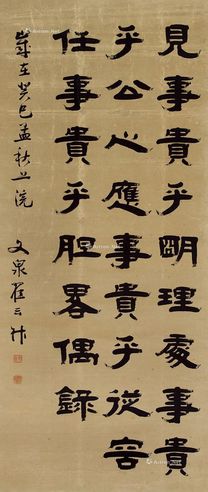 見事貴乎朙理處事貴
乎公心應事貴乎從容
任事貴乎胆畧偶錄
歲在癸巳孟秋上浣
泉崔